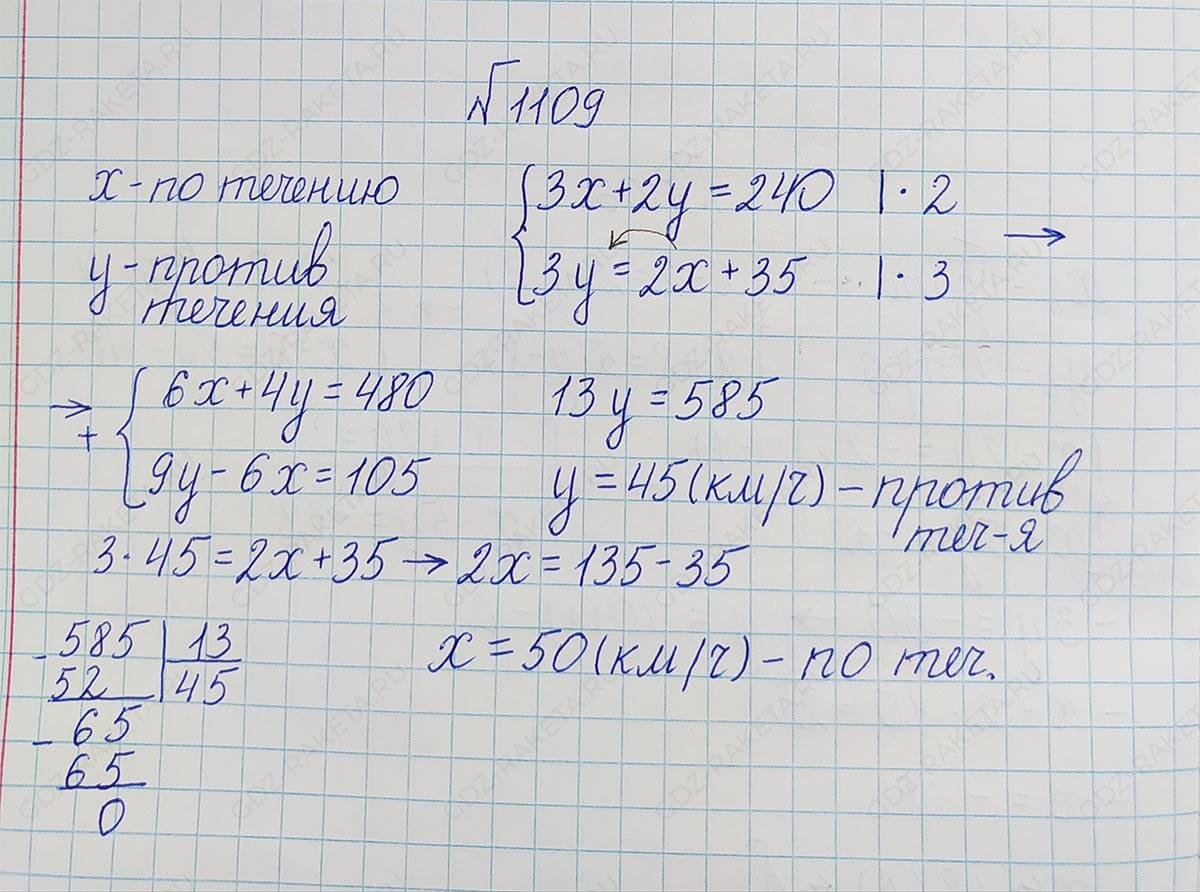 №1109
x - по течению
y - против течения
{3x + 2y = 240 | · 2
{3y = 2x + 35 | · 3 →
→ + {6x + 4y = 480
{9y - 6x = 105
13y = 585
y = 45 (км/ч) - против теч-я
3 · 45 = 2x + 35 → 2x = 135 - 35
x = 50 (км/ч) - по теч.
- 585 | 13
52 | 45
- 65
65
0
GDZ-RAKETA.RU